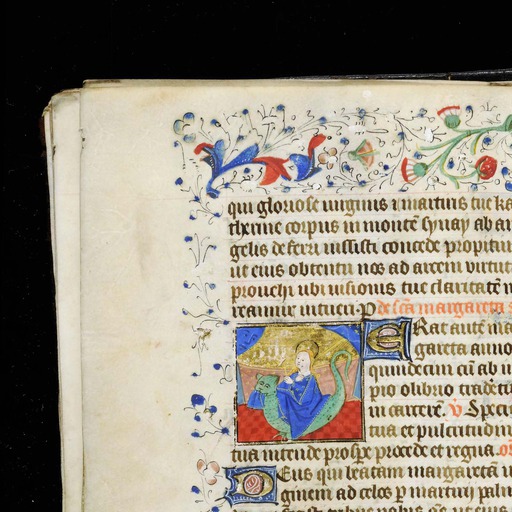 qui gloriose uirginis ⁊ martiris tue ka
therine corpus in monte synay ab an
gelis deferri iussisti concede propitiu
ut eius obtentu nos ad arcem uirtutu
prouehi ubi uisionis tue claritatē m
reamur intueri. P de scā margareta
Erat autē ma
gareta anno
quindecim cū ab
pio olibrio tradēt
in carcerē. ℣ Speci
tua et pulcritudin
tua intende prospe procede et regna. or
Deus qui beatam margaretā u
ginem ad celos p martirij palm